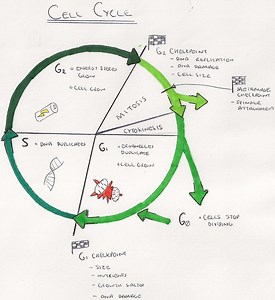 CELL CYCLE
G2 CHECKPOINT
- DNA REPLICATION
- DNA DAMAGE
- CELL SIZE
G2 = ENERGY STORES
GROW
+ CELL GROW
METAPHASE
CHECKPOINT
- SPINDLE
ATTACHMENT
MITOSIS
CYTOKINESIS
S = DNA DUPLICATES
G1 = ORGANELLES
DUPLICATE
+ CELL GROW
G0 = CELLS STOP
DIVIDING
G1 CHECKPOINT
- SIZE
- NUTRIENTS
- GROWTH FACTOR
- DNA DAMAGE